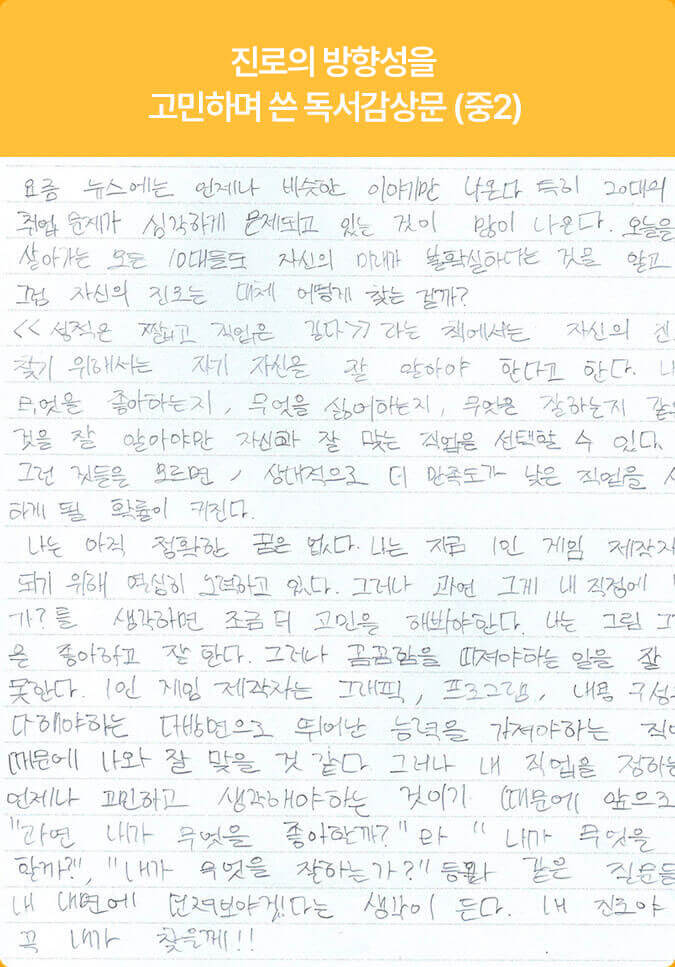 진로의 방향성을
고민하며 쓴 독서감상문 (중2)
요즘 뉴스에는 언제나 비슷한 이야기만 나온다 특히 20대의
취업 문제가 심각하게 문제되고 있는 것이 많이 나온다. 오늘을
살아가는 모든 10대들도 자신의 미래가 불확실하다는 것을 알고
그럼 자신의 진로는 대체 어떻게 찾는 걸까?
<<성적은 짧고 직업은 길다>> 라는 책에서는 자신의
찾기 위해서는 자기 자신을 잘 알아야 한다고 한다.
무엇을 좋아하는지, 무엇을 싫어하는지, 무엇을 잘하는지
것을 잘 알아야만 자신과 잘 맞는 직업을 선택할 수 있다.
그런 것들을 모르면, 상대적으로 더 만족도가 낮은 직업을
하게 될 확률이 커진다.
나는 아직 정확한 꿈은 없다. 나는 지금 1인 게임 제작자
되기 위해 열심히 노력하고 있다. 그러나 과연 그게 내 직성에
가?를 생각하면 조금 더 고민을 해봐야한다. 나는 그림
은 좋아하고 잘 한다. 그러나 꼼꼼함을 따져야하는 일을 잘
못한다. 1인 게임 제작자는 그래픽, 프로그램, 내용 구성
다해야하는 다방면으로 뛰어난 능력을 가져야하는
때문에 나와 잘 맞을 것 같다. 그러나 내 직업을 정하는
언제나 고민하고 생각해야하는 것이기 때문에 앞으로
"과연 내가 무엇을 좋아할까?" 와 "내가 무엇을
할까?", "내가 무엇을 잘하는가?" 등과 같은 질문들
내 내면에 던져보아야겠다는 생각이 든다. 내 진로야
꼭 내가 찾을께!!